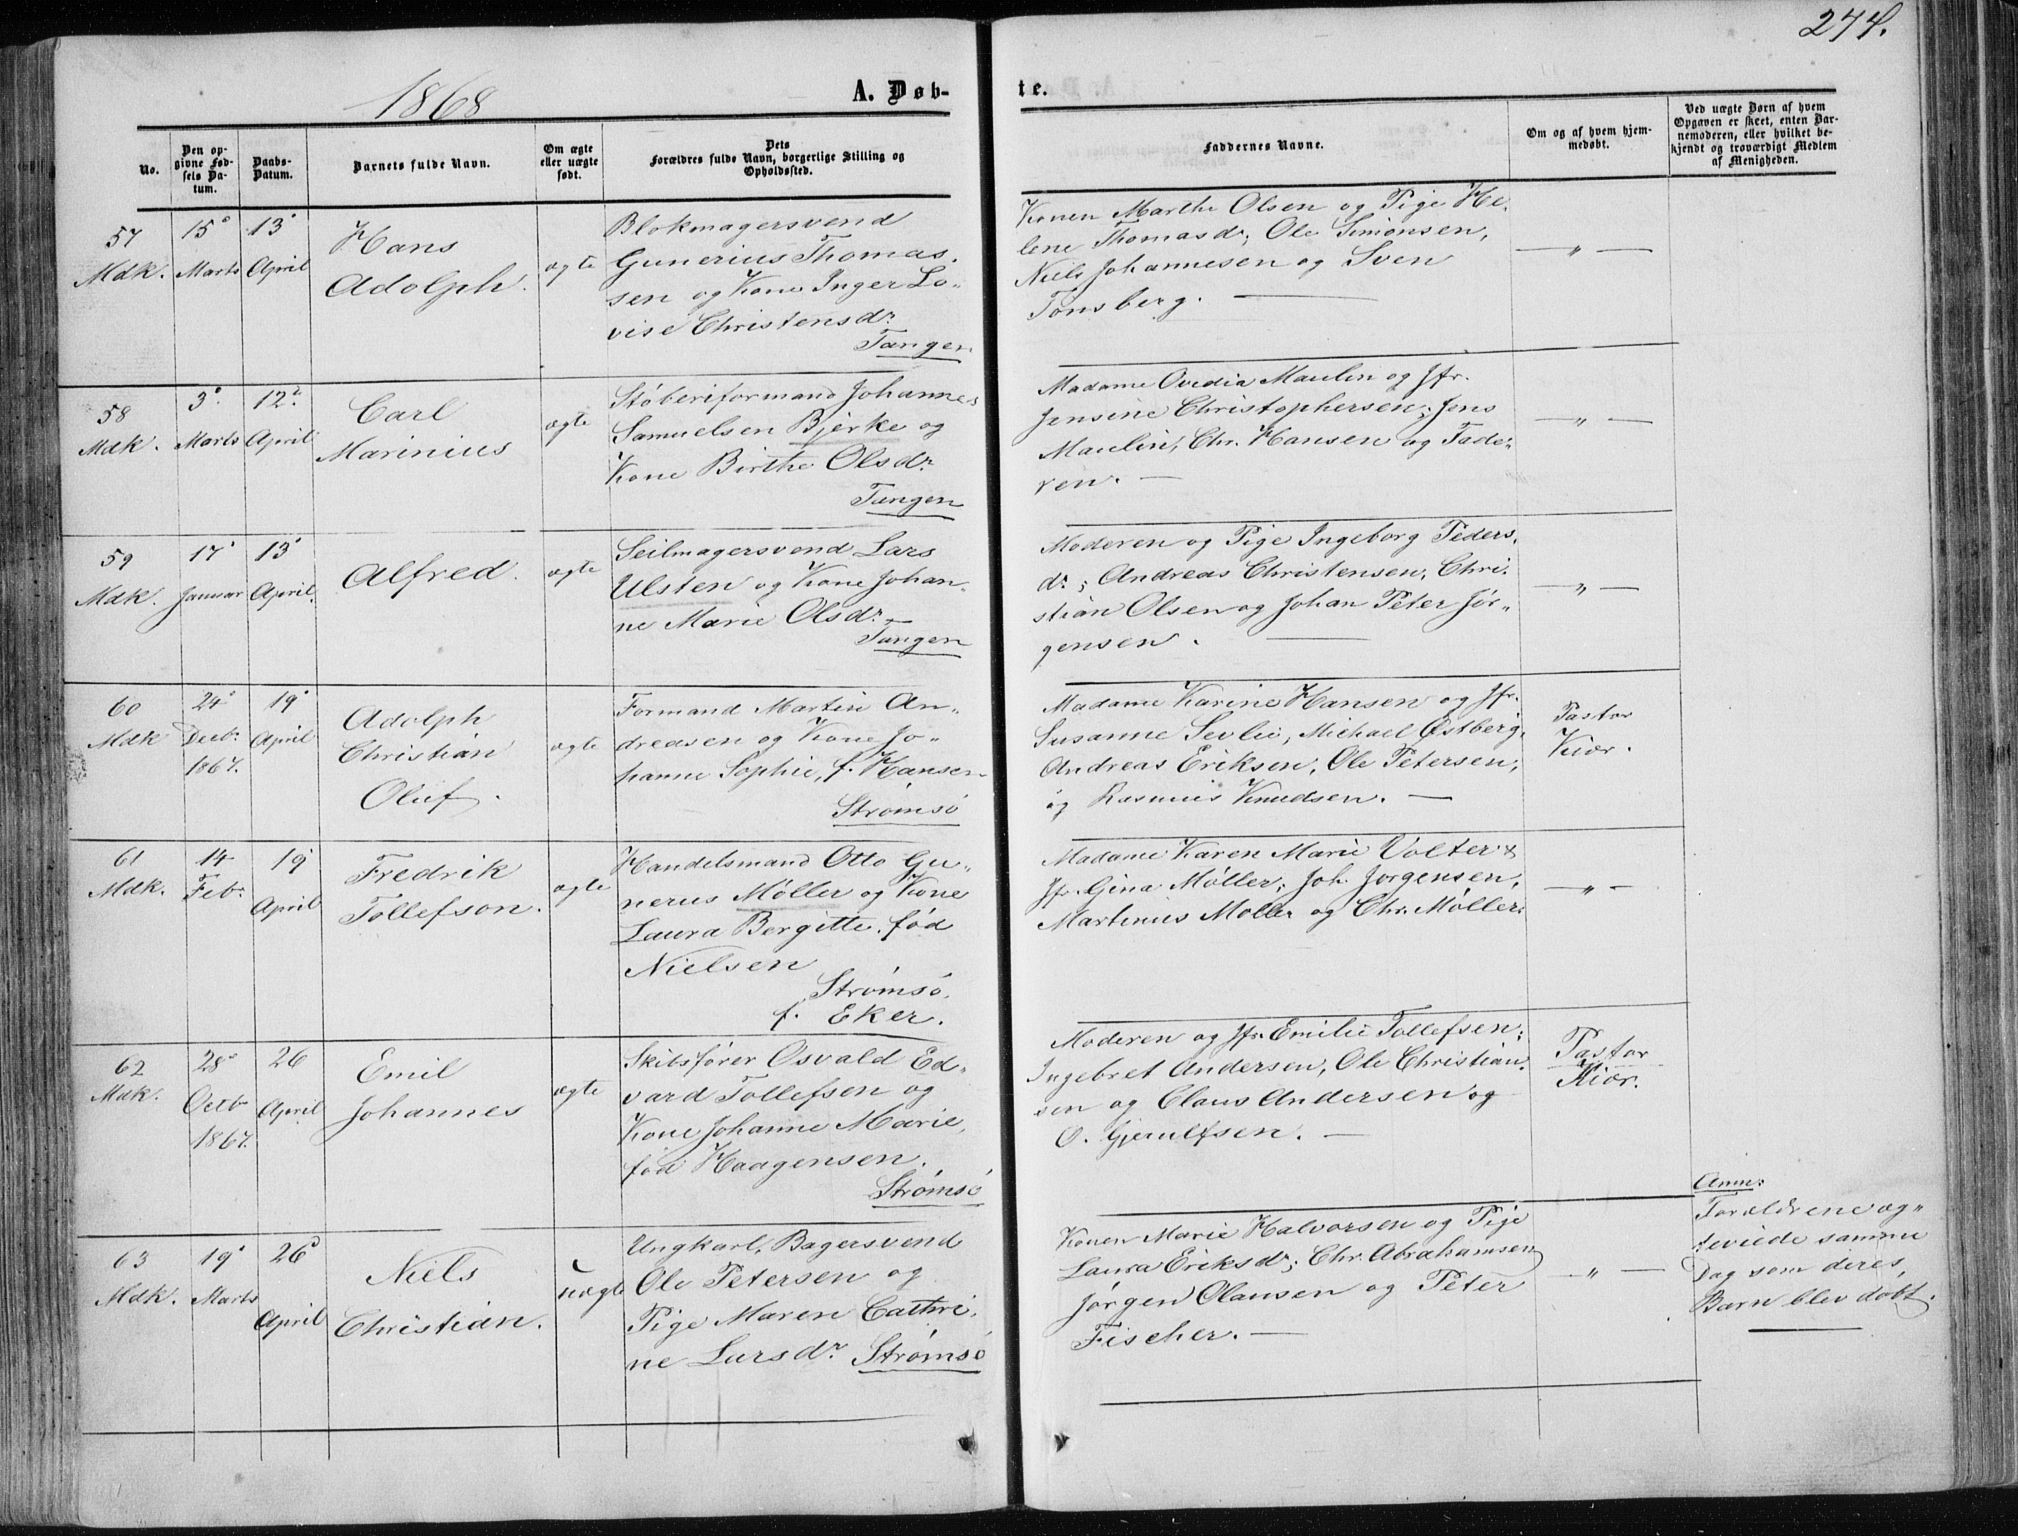 274.
1868
A. Døb-
te.
No.
Den op-
givne Fød-
sels Da-
tum.
Daabs-
Datum.
Barnets fulde Navn.
Om ægte
eller uægte
født.
Dets
Forældres fulde Navn, borgerlige Stilling og
Opholdssted.
Faddernes Navne.
Om og af hvem hjem-
medøbt.
Ved uægte Børn af hvem
Opgaven er skeet, enten Bar-
nemoderen, eller hvilket be-
kjendt og troværdigt Medlem
af Menigheden.
57
Mdk.
15°
Marts
13°
April
Hans
Adolph.
ægte
Blokmagersvend
Gunerius Thomas-
sen og Kone Inger Lo-
vise Christensdr.
Tangen
Konen Marthe Olsen og Pige He-
lene Thomasdr, Ole Simonsen,
Niels Johannesen og Sven
Tønsberg. —
— " —
58
Mdk.
3°
Marts
12te
April
Carl
Marinius
ægte
Støberiformand Johannes
Samuelsen Bjerke og
Kone Birthe Olsdr.
Tangen
Madame Ovedia Maulin og Jfr.
Jensine Christophersen; Jens
Maulin, Chr. Hansen og Fade-
ren. —
— " —
59
Mdk.
17°
Januar
13°
April.
Alfred.
ægte
Seilmagersvend Lars
Ulsten og Kone Johan-
ne Marie Olsdr.
Tangen
Moderen og Pige Ingeborg Peders-
dr; Andreas Christensen, Chri-
stian Olsen og Johan Peter Jør-
gensen. —
— " —
60
Mdk
24°
Decbr.
1867.
19°
April
Adolph
Christian
Oluf.
ægte
Formand Martin An-
dreasen og Kone Jo-
hanne Sophie, f. Hansen
Strømsø
Madame Karine Hansen og Jfr.
Susanne Sevlie, Michael Østberg,
Andreas Eriksen, Ole Petersen,
og Rasmus Knudsen. —
Pastor
Kiær.
61
Mdk.
14
Febr.
19°
April
Fredrik
Tollefson.
ægte
Handelsmand Otto Gu-
nerus Møller og Kone
Laura Bergitte, fød
Nielsen
Strømsø.
f. Eker.
Madame Karen Marie Wolter &
Jfr. Gina Møller; Joh. Jørgensen,
Martinius Møller og Chr. Møller.
— " —
62
Mdk.
28°
Octb
1867.
26
April
Emil
Johannes
ægte
Skibsfører Osvald Ed-
vard Tollefsen og
Kone Johanne Marie,
fød Haagensen.
Strømsø
Moderen og Jfr. Emilie Tollefsen;
Ingebret Andersen, Ole Christian-
sen og Claus Andersen og
O. Gjerulfsen. —
Pastor
Kiær.
63
Mdk.
19°
Marts
26°
April
Niels
Christian.
uægte
Ungkarl, Bagersvend
Ole Petersen og
Pige Maren Cathri-
ne Larsdr. Strømsø
Konen Marie Halvorsen og Pige
Laura Eriksdr; Chr. Abrahamsen,
Jørgen Olausen og Peter
Fischer. —
— " —
Anm:
Forældrene æg-
teviede samme
Dag som deres
Barn blev døbt.